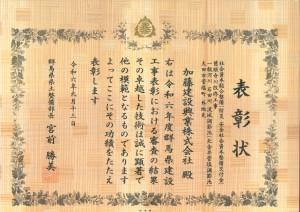 表彰状
加藤建設興業株式会社 殿
右は令和六年度群馬県建設
工事表彰における審査の結果
その卓越した技術は誠に顕著で
他の模範となるものであります
よってここにその功績をたたえ
表彰します
令和六年九月十三日
群馬県県土整備部長 宮前 勝美